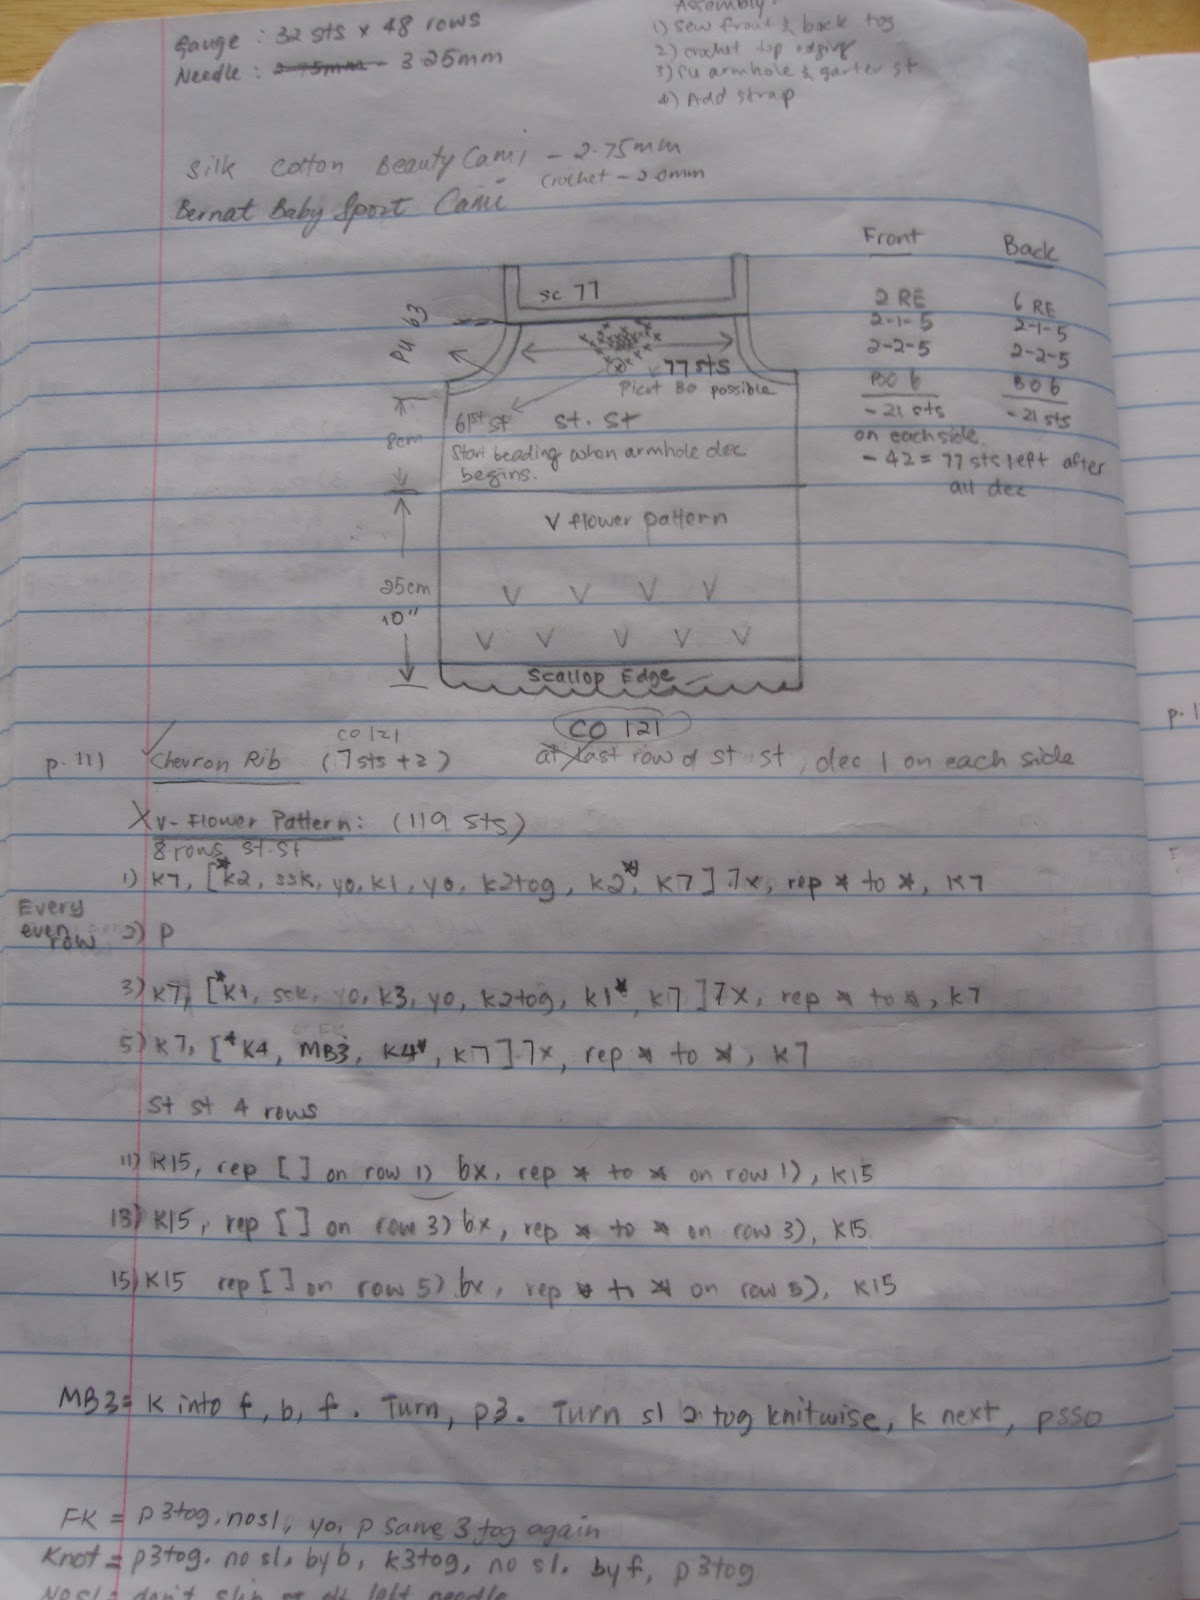 Gauge : 32 sts x 48 rows
Needle : 2.75mm - 3.25mm
Assembly:
1) Sew front & back tog
2) crochet top edging
3) PU armhole & garter st
4) Add strap
Silk Cotton Beauty Cami - 2.75mm
Crochet - 2.0mm
Bernat Baby Sport Cami
Front Back
2 RE 6 RE
2-1-5 2-1-5
2-2-5 2-2-5
BO 6 BO 6
- 21 sts - 21 sts
on each side
- 42 = 77 sts left after
all dec
sc 77
PU 63
77 sts
Picot BO possible
61st st st. st
8cm
Start beading when armhole dec
begins.
V flower pattern
25cm
10"
V V V V
V V V V V
Scallop Edge
CO 121
p. 111 Chevron Rib (7 sts + 2)
CO 121
at last row of st st, dec 1 on each side
X V-Flower Pattern: (119 sts)
8 rows st.st
1) K7, [*K2, ssk, yo, K1, yo, K2tog, K2*, K7] 7x, rep * to *, K7
Every
even
row 2) P
3) K7, [*K1, ssk, yo, K3, yo, K2tog, K1*, K7] 7x, rep * to *, K7
5) K7, [*K4, MB3, K4*, K7] 7x, rep * to *, K7
St st 4 rows
11) K15, rep [ ] on row 1) 6x, rep * to * on row 1), K15
13) K15, rep [ ] on row 3) 6x, rep * to * on row 3), K15
15) K15 rep [ ] on row 5) 6x, rep * to * on row 5), K15
MB3 = K into f, b, f. Turn, p3. Turn sl 2 tog knitwise, k next, psso
FK = P3tog, no sl, yo, p same 3 tog again
Knot = p3tog, no sl, by b, K3tog, no sl, by f, p3tog
No sl = don't slip st off left needle
p. 1